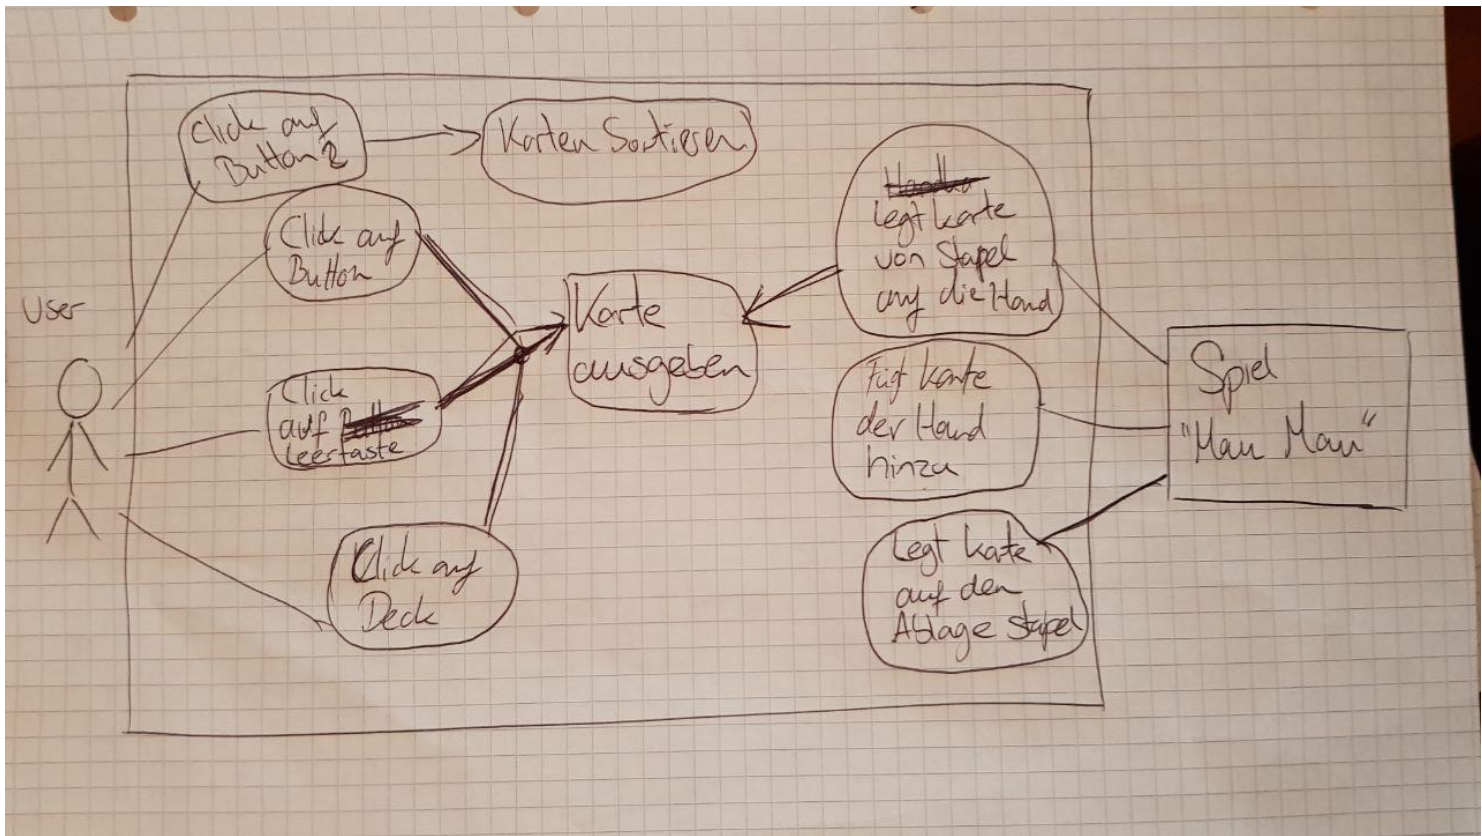 User
Click auf
Button 2
Karten Sortieren
Click auf
Button
Click
auf
Leertaste
Click auf
Deck
Karte
ausgeben
legt Karte
von Stapel
auf die Hand
Fügt Karte
der Hand
hinzu
Legt Karte
auf den
Ablage stapel
Spiel
"Mau Mau"